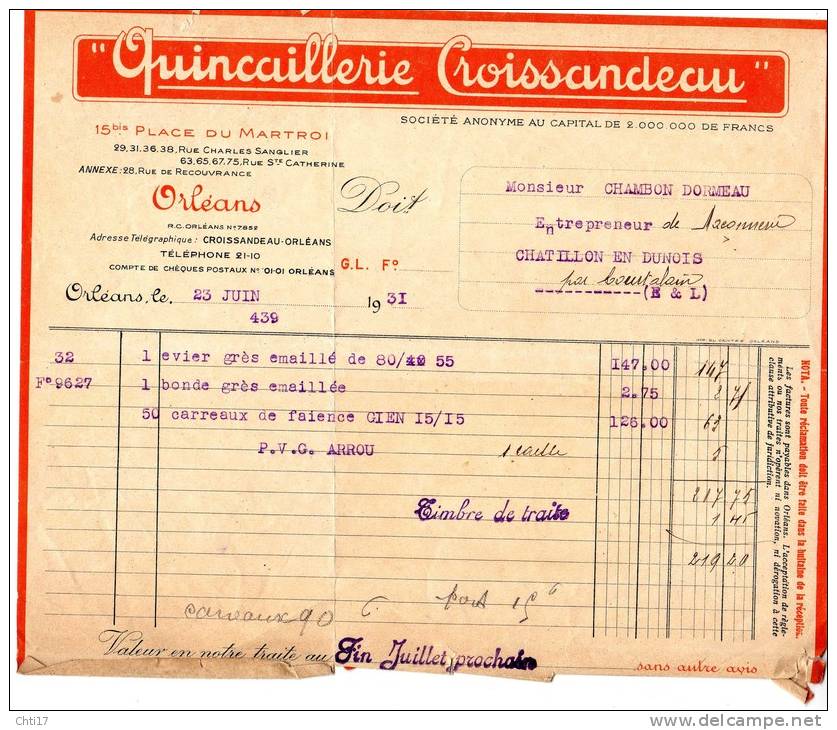 "Quincaillerie Croissandeau"
SOCIÉTÉ ANONYME AU CAPITAL DE 2.000.000 DE FRANCS
15bis PLACE DU MARTROI
29,31.36.38, RUE CHARLES SANGLIER
63,65.67.75, RUE STE CATHERINE
ANNEXE: 28, RUE DE RECOUVRANCE
Orléans
R.C. ORLÉANS No 7852
Adresse Télégraphique: CROISSANDEAU-ORLÉANS
TÉLÉPHONE 21-10
COMPTE DE CHÈQUES POSTAUX No 101-01 ORLÉANS
Doit
G.L. Fo
Monsieur CHAMBON DORMEAU
Entrepreneur de Maçonnerie
CHATILLON EN DUNOIS
par Courtalain
(E & L)
Orléans, le 23 JUIN 1931
439
32 1 evier grès emaillé de 80/ 55 147.00 147
Fo 9627 1 bonde grès emaillée 2.75 2 75
50 carreaux de faience GIEN 15/15 126.00 63
P.V.G. ARROU 1 caisse 5
217 75
Timbre de traite 1 45
219 20
carreaux 90 port 15
Valeur en notre traite au Fin Juillet prochain sans autre avis
NOTA. - Toute réclamation doit être faite dans la huitaine de la réception.
Les factures sont payables dans Orléans. L'acceptation de règle-
ments ou nos traites n'opèrent ni novation, ni dérogation à cette
clause attributive de juridiction.
Chti17
www.delcampe.net